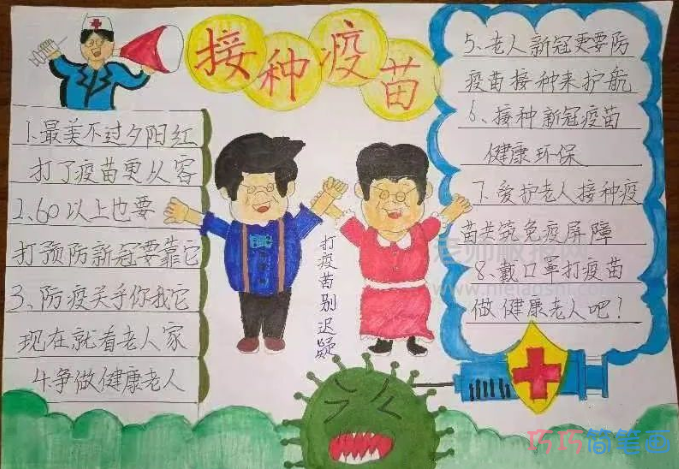 接种疫苗
1.最美不过夕阳红
打了疫苗更从容
2.60以上也要
打预防新冠要靠它
3.防疫关乎你我它
现在就看老人家
4.争做健康老人
打疫苗别迟疑
5.老人新冠更要防
疫苗接种来护航
6、接种新冠疫苗
健康环保
7.爱护老人接种疫
苗共筑免疫屏障
8.戴口罩打疫苗
做健康老人吧?
巧巧简笔画